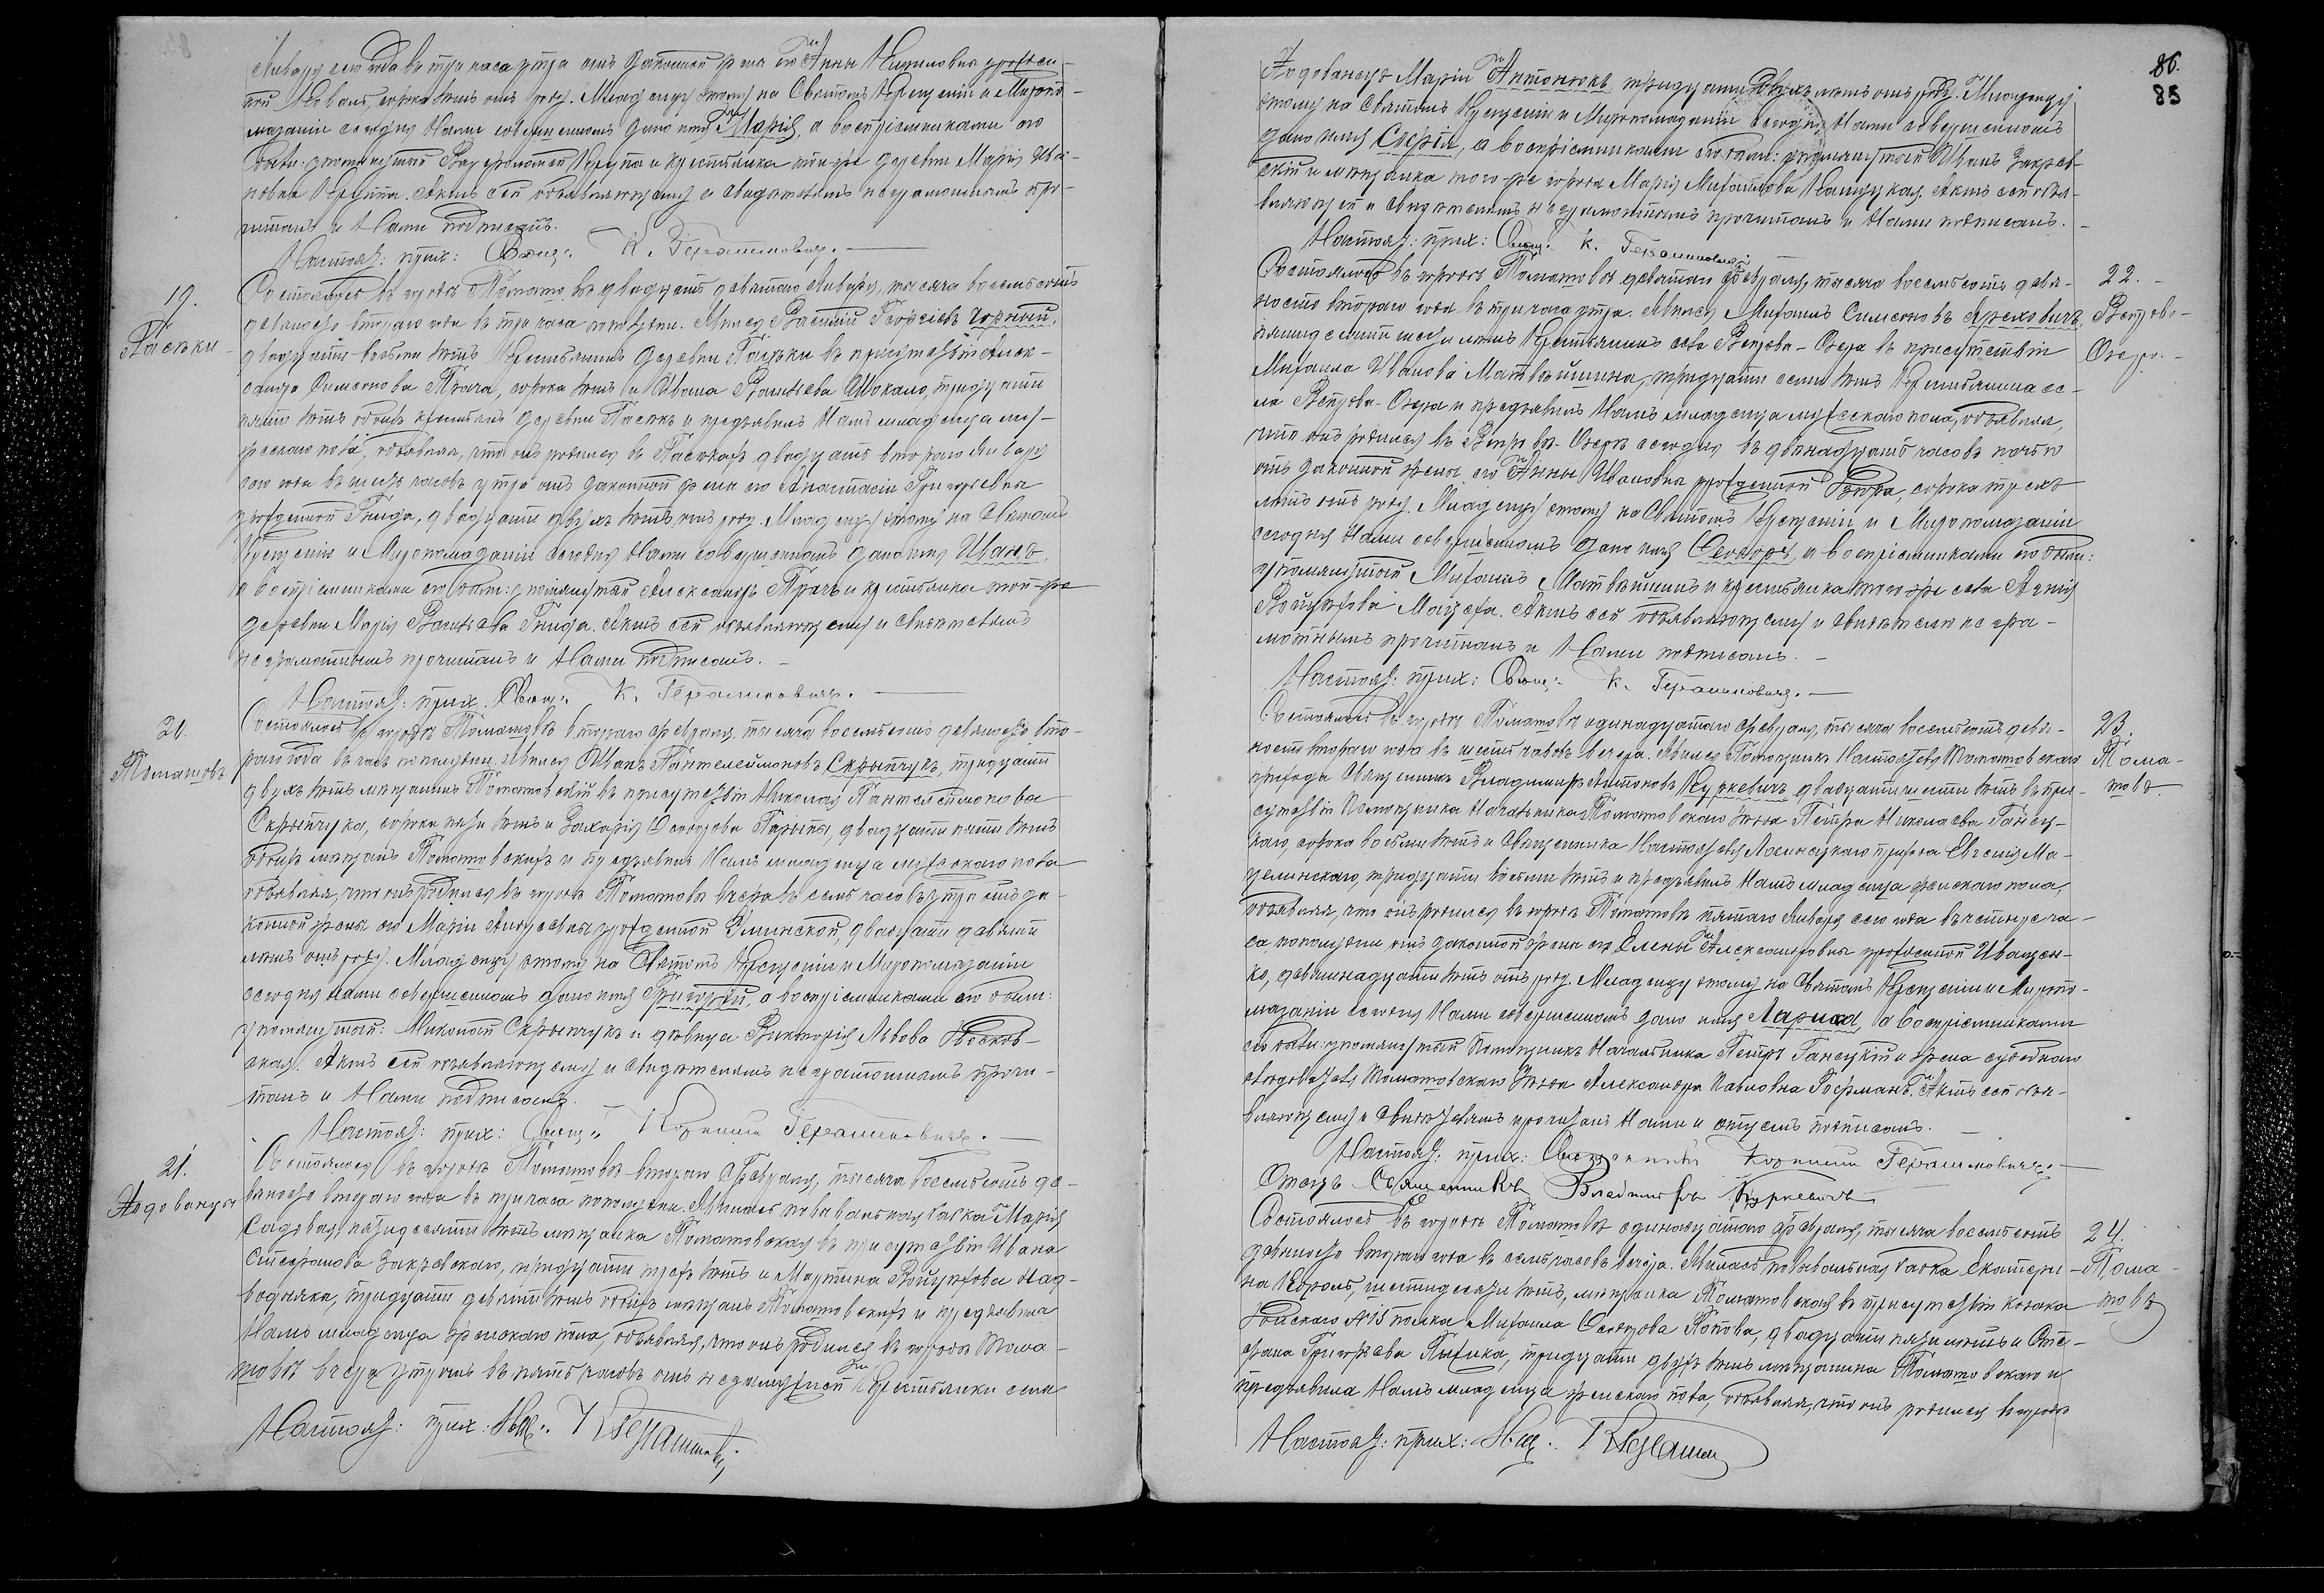 Января сего года въ три часа утра отъ законной жены его Анны Кириловны урожден-
ной Коваль, сорока лѣтъ отъ роду. Младенцу этому на Святомъ Крещеніи и Миропо-
мазаніи сегодня Нами совершенномъ дано имя Марія, а воспріемниками его
были: упомянутый и крестьянка той-же деревни Марія Ива-
нова. Актъ сей объявляющему и свидѣтелямъ неграмотнымъ про-
читанъ и Нами подписанъ.
Настоят: прих: Свящ: К. Герашиновичъ.
19.
Пасѣки
Состоялось въ городѣ Томашовѣ двадцать девятаго Января, тысяча восемьсотъ
девяносто втораго года въ три часа пополудни. Явился Василій Георгіевъ Чорный,
двадцати восьми лѣтъ Крестьянинъ деревни Пасѣки въ присутствіи Алек-
сандра Симеонова Прача, сорока лѣтъ и Ивана Васильева тридцати
пяти лѣтъ обоихъ крестьянъ деревни Пасѣкъ и предъявилъ Намъ младенца му-
жескаго пола, объявляя, что онъ родился въ Пасѣкахъ двадцать втораго Января
сего года въ шесть часовъ утра отъ законной жены его Анастасіи Григорьевны
урожденной Гнида, двадцати двухъ лѣтъ отъ роду. Младенцу этому на Святомъ
Крещеніи и Миропомазаніи сегодня Нами совершенномъ дано имя Иванъ,
а воспріемниками его были: упомянутый Александръ Прачъ и крестьянка той-же
деревни Марія Васильева Гнида. Актъ сей объявляющему и свидѣтелямъ
неграмотнымъ прочитанъ и Нами подписанъ.
Настоят: прих: Свящ: К. Герашиновичъ.
20.
Томашовъ
Состоялось въ городѣ Томашовѣ втораго Февраля, тысяча восемьсотъ девяносто вто-
раго года въ часъ пополудни. Явился Иванъ Пантелеймоновъ Скрыпчукъ, тридцати
двухъ лѣтъ мѣщанинъ Томашовскій въ присутствіи Николая Пантелеймонова
Скрыпчука, сорока пяти лѣтъ и Захарія Ѳеодорова двадцати пяти лѣтъ
обоихъ мѣщанъ Томашовскихъ и предъявилъ Намъ младенца мужескаго пола
объявляя, что онъ родился въ городѣ Томашовѣ вчера въ семь часовъ утра отъ за-
конной жены его Маріи урожденной двадцати девяти
лѣтъ отъ роду. Младенцу этому на Святомъ Крещеніи и Миропомазаніи
сегодня нами совершенномъ дано имя Григорій, а воспріемниками его были:
упомянутый: Николай Скрыпчукъ и дѣвица Викторія Львова
Актъ сей объявляющему и свидѣтелямъ неграмотнымъ прочи-
танъ и Нами подписанъ.
Настоят: прих: Свящ: Корнилій Герашиновичъ.
21.
Лодованцы
Состоялось въ городѣ Томашовѣ втораго Февраля, тысяча восемьсотъ де-
вяносто втораго года въ три часа пополудни. Явилась повивальная бабка Марія
Садовая, пятидесяти лѣтъ мѣщанка Томашовская въ присутствіи Ивана
Стефанова Закревскаго, тридцати трехъ лѣтъ и Мартина Войцѣхова
тридцати девяти лѣтъ обоихъ мѣщанъ Томашовскихъ и предъявила
Намъ младенца женскаго пола, объявляя, что онъ родился въ городѣ Тома-
шовѣ вчера утромъ въ пять часовъ отъ незамужней Крестьянки села
Настоят: прих: Свящ: К Герашинов
86.
85
Лодованцы Маріи Антонюкъ, тридцати двухъ лѣтъ отъ роду. Младенцу
этому на Святомъ Крещеніи и Миропомазаніи сегодня Нами совершенномъ
дано имя а воспріемниками его были: упомянутый Иванъ Закрев-
скій и мѣщанка того-же города Марія Михайлова Актъ сей объя-
вляющей и свидѣтелямъ неграмотнымъ прочитанъ и Нами подписанъ.
Настоят: прих: Свящ: К. Герашиновичъ
22.
Вепрово-
Озеро.
Состоялось въ городѣ Томашовѣ девятаго Февраля, тысяча восемьсотъ девя-
носто втораго года въ три часа утра. Явился Михаилъ Симеоновъ
пятидесяти шести лѣтъ Крестьянинъ села Вепрово-Озера въ присутствіи
Михаила Иванова Матвѣйшина, тридцати семи лѣтъ Крестьянина се-
ла Вепрова-Озера и предъявилъ Намъ младенца мужескаго пола, объявляя,
что онъ родился въ Вепрово-Озерѣ сегодня въ двѣнадцать часовъ ночью
отъ законной жены его Анны Ивановны урожденной сорока трехъ
лѣтъ отъ роду. Младенцу этому на Святомъ Крещеніи и Миропомазаніи
сегодня Нами совершенномъ дано имя Ѳеодоръ, а воспріемниками его были:
упомянутый Михаилъ Матвѣйшинъ и крестьянка того же села
Войцѣхова Актъ сей объявляющему и свидѣтелю негра-
мотнымъ прочитанъ и Нами подписанъ.
Настоят: прих: Свящ: К. Герашиновичъ.
23.
Тома-
шовъ.
Состоялось въ городѣ Томашовѣ одинадцатаго Февраля, тысяча восемьсотъ девя-
носто втораго года въ шесть часовъ вечера. Явился Помощникъ Настоятеля Томашовскаго
прихода Священникъ Владимиръ Антоновъ Куркевичъ двадцати шести лѣтъ въ при-
сутствіи Помощника Начальника Томашовскаго уѣзда Петра Николаева Ганец-
каго, сорока восьми лѣтъ и Священника Настоятеля прихода Евгенія Ма-
целинскаго, тридцати восьми лѣтъ и предъявилъ Намъ младенца женскаго пола,
объявляя, что онъ родился въ городѣ Томашовѣ пятаго Января сего года въ четыре ча-
са пополудни отъ законной жены его Елены Александровны урожденной Иващен-
ко, девятнадцати лѣтъ отъ роду. Младенцу этому на Святомъ Крещеніи и Миропо-
мазаніи сегодня Нами совершенномъ дано имя Лариса, а воспріемниками
его были: упомянутый Помощникъ Начальника Петръ Ганецкій и жена судебнаго
слѣдователя Томашовскаго уѣзда Александра Павловна Германъ. Актъ сей объя-
вляющему и свидѣтелямъ прочитанъ Нами и отцемъ подписанъ.
Настоят: прих: Священникъ Корнилій Герашиновичъ.
Отецъ Священникъ Владимiръ Куркевичъ
24.
Тома-
шовъ
Состоялось въ городѣ Томашовѣ одинадцатаго Февраля, тысяча восемьсотъ
девяносто втораго года въ семь часовъ вечера. Явилась повивальная бабка Екатери-
на Король, шестидесяти лѣтъ, мѣщанка Томашовская въ присутствіи козака
Донскаго №15 полка Михаила Ѳеодорова Попова, двадцати пяти лѣтъ и Сте-
фана Григорьева тридцати двухъ лѣтъ мѣщанина Томашовскаго и
предъявила Намъ младенца женскаго пола, объявляя, что онъ родился въ городѣ
Настоят: прих: Свящ: К Герашин